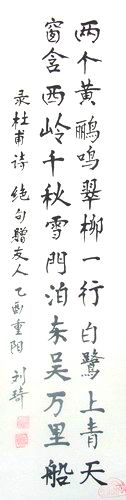 两个黄鹂鸣翠柳一行白鹭上青天
窗含西岭千秋雪門泊东吴万里船
录杜甫诗 绝句赠友人 乙酉重阳 刘琦